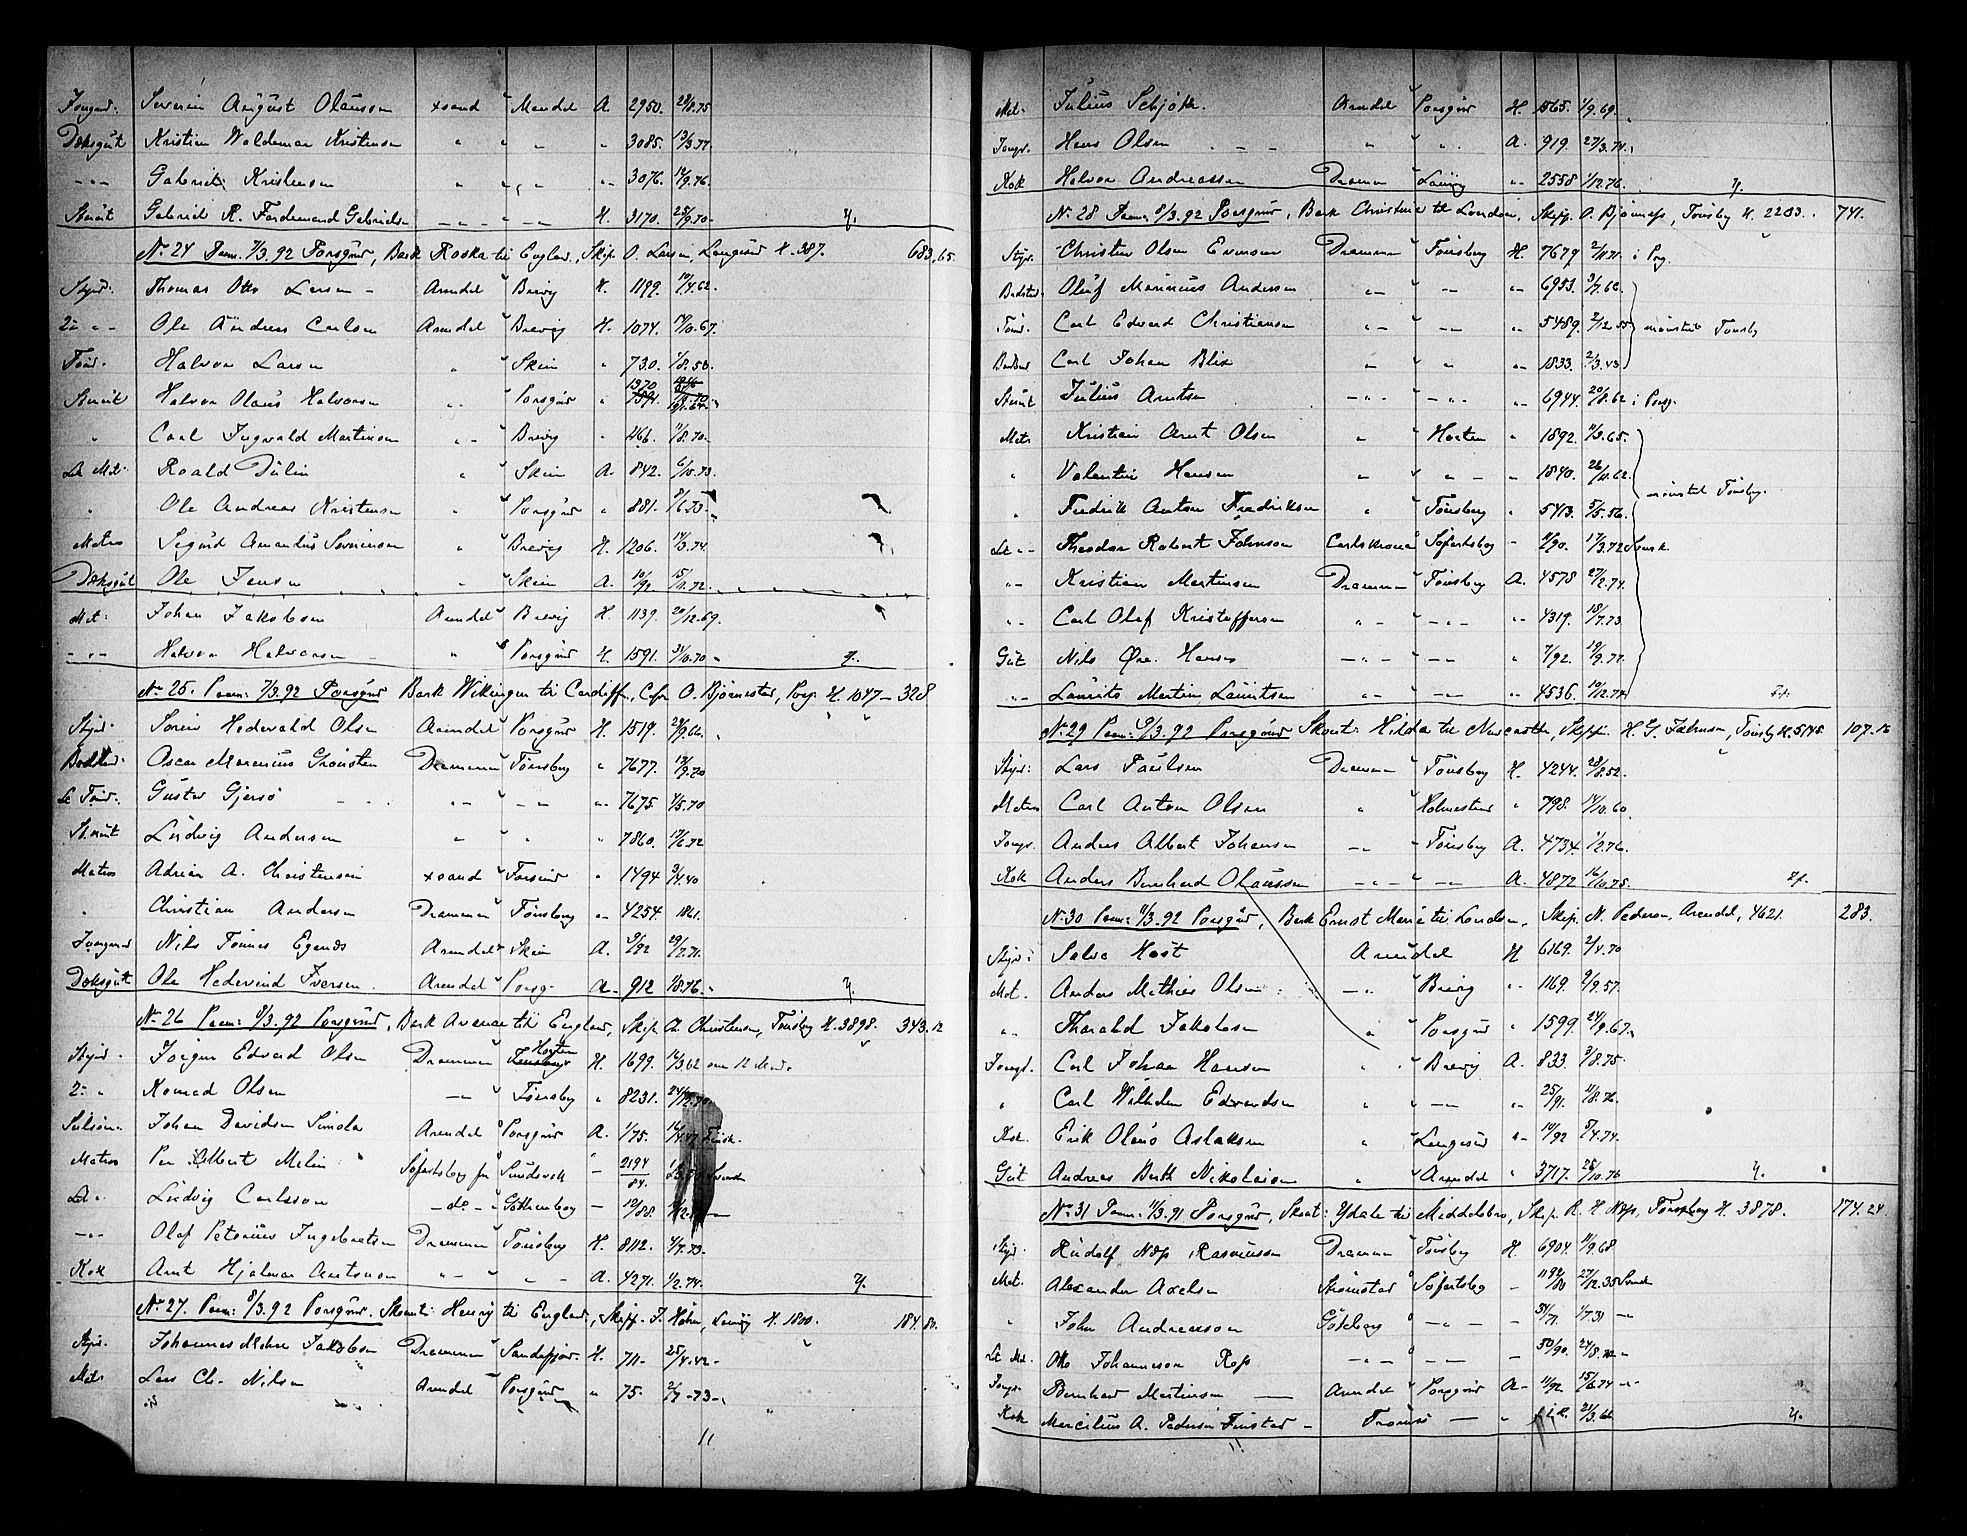 Jungmd. Severin August Olaussen xsand " Mandal A. 2950. 28/8.75
Dæksgut Kristian Waldemar Kristensen " " " " 3085. 13/3.77.
-"- Gabriel Kristensen " " " "- 3076. 12/9.76.
Stuart Gabriel R. Ferdinand Gabriels- -"- " -"- H. 3170. 28/9.70-
No 24 Paam: 7/3.92 Porsgrund, Bark Roska til England, Skip. O. Larsen, Langesund H. 387. 683,65.
Styrd. Thomas Otto Larsen - Arendal " Brevig H. 1199. 12/4.62.
2- "- Ole Andreas Carlsen Arendal " Brevig H. 1074. 14/10.67.
Tømd. Halvor Larsen " " Skien " 730. 1/8.50.
Stuart Halvor Olaus Halvorsen " " Porsgrund " 1370
" Carl Ingvald Martinsen "- " Brevig " 266. 11/8.70-
Lt Mat. Roald Dulin " " Skien A. 842. 6/10.73.
" Ole Andreas Kristensen " " Porsgrund " 881.
Matros Sigurd Amandus Severinsen " " Brevig H. 1206. 14/3.74.
Dæksgut Ole Jensen " " Skien A. 10/92 15/11.72.
Mat: Johan Jakobsen Arendal " Brevig H. 1139. 20/12.69.
-"- Halvor Halvorsen " " Porsgrund H. 1591. 31/10.70-
No 25. Paam: 7/3.92 Porsgrund Bark Wikingen til Cardiff, Cpn O. Bjørnestad, Porsg. H. 1047 - 328
Styrd. Søren Hedevald Olsen Arendal " Porsgrund H. 1519. 24/9.62.
Oscar Marenius Grønsten Drammen " Tønsberg " 7677. 19/9.70
Lt Tømd. Gustav Gjersø -"- " -"- "- 7675. 4/5.70
Stuart Ludvig Andersen " " " " 7860. 17/6.72
Matros Adrian A. Christensen xsand " Farsund " 1494 3/4.40
" Christian Andersen Drammen " Tønsberg "- 4254 1861.
Jungmd Nils Tønnes Egenes Arendal " Skien A. 9/92 29/7.71.
Dæksgut Ole Hedevind Iversen Arendal " Porsg. A- 912 1/8.76.-
No 26 Paam: 8/3.92 Porsgrund, Bark Avance til England, Skip. A. Christensen, Tønsberg H. 3898. 343.12
Styrd. Jørgen Edvard Olsen Drammen " Horten H. 1699. 14/3.62
2- " Konrad Olsen -"- " Tønsberg " 8231.
Johan Davidsen Simola Arendal " Porsgrund A. 1/75. Finsk.
Matros Per Albert Melin Søfartsbog fra Sundsvall - 2194/84. Svensk
Lt " Ludvig Carlsson -do- " Göthenborg - 12/88.
-"- Olaf Petrinus Ingebretsen Drammen " Tønsberg H. 8112. 4/7.73.
Kok Arnt Hjalmar Arntsen "- " " - A. 4271. 1/2.74.
No 27. Paam: 8/3.92 Porsgrund. Skonnt: Henrig til England, Skipp. J. Holm, Laurvig H. 1800. 184.80.
Styrd. Johannes Jakobsen Drammen " Sandefjord. H. 711- 25/4.42-
Mat. Lars Chr. Nilsen Arendal " Porsgrund " 75. 2/9-73-
11
Mat. Julius Schjøth. Arendal " Porsgrund H. 1565. 1/9.69.
Jungd. Hans Olsen - - - " " " A. 919. 27/3.74.
Kok Halvor Andreassen Drammen " Laurvig "- 2558 1/12.76.
No 28 Paam: 8/3.92 Porsgrund, Bark Christine til London, Skip. O. Bjønness, Tønsby H. 2203. 741.
Styr. Christian Olsen Evensen Drammen " Tønsberg H. 7679 2/11.71. i Porsg.
Oluf Marinius Andersen "- " -- "- 6953. 3/7.66.
Tømd. Carl Edvard Christiansen "- " -"- "- 5489. 2/12.55 mønstret Tønsby
Carl Johan Blix " " " "- 1833. 2/3.43
Stuart Julius Arntsen -"- " -"- "- 6944. 20/8.62 i Porsg.
Mat. Kristian Arnt Olsen " " Horten " 1892. 11/3.65.
" Valentin Hansen " " " - " 1840. 26/11.62.
" Fredrik Anton Fredriksen " " Tønsberg " 5413. 5/5.56. mønstret Tønsby.
Lt "- Theodor Robert Johnson Carlskrona " Søfartsbog - 2/90. 17/3.72 Svensk
"- Kristian Martinsen Drammen " Tønsberg A. 4578 27/2.74.
"- Carl Olaf Kristoffersen "- " -"- "- 4319. 18/7.73
Gut Nils Øre. Hansen -"- " -"- 7/92. 19/9.77.
"- Laurits Martin Lauritsen "- " -"- "- 4536. 10/12.74.
No 29 Paam: 9/3.92 Porsgrund Skonnt: Hilda til Newcastle, Skipp. H. G. Johnsen, Tønsby H. 5145 107.16
Styrd: Lars Paulsen Drammen " Tønsberg H. 4244. 28/8.52.
Matros Carl Anton Olsen " " Holmestrand " 798. 14/10.60
Jungd. Anders Albert Johansen -"- " Tønsberg A. 4734. 1/2.76.
Kok Anders Bernhard Olaussen -"- " -"- A. 4872 16/10.75.
No 30 Paam: 11/3.92 Porsgrund, Bark Ernst Marie til London, Skip. N. Pedersen, Arendal, 4621. 283.
Styrd: Salve Host Arendal H 6169. 2/4.70
Mat. Anders Mathias Olsen -"- " Brevig "- 1169. 9/9.57.
"- Tharald Jakobsen " " Porsgrund " 1599. 24/9.67.
Jungd. Carl Johan Hansen " " Brevig A. 833. 3/8.75.
" Carl Wilhelm Edvardsen " " -"- "- 25/91. 11/8.76.
Kok. Erik Olaus Aslaksen " " Langesund "- 10/92 8/4.74.
Gut Andreas Berth Nikolaisen " " Arendal " 3717. 25/10.76
No 31 Paam: 11/3.91 Porsgrund, Skonnt: Ydale til Middelsbro, Skip. R. H. Næss, Tønsberg H. 3878. 174.24.
Styrd. Rudolf Næss Rasmussen Drammen " Tønsberg H. 6904. 11/9.68
Mat. Alexander Axelsen Strømstad " Søfartsbog - 1192/80 27/12.35 Svensk
" John Andreasson Göteborg " -"- - 31/71. 1/7.31 -"-
Lt Mat. Otto Johannesson Ross -"- " -"- - 50/90. 24/8.
Jungd. Bernhard Martinsen - Arendal " Porsgrund A- 11/92 15/6.74 -"-
Kok Marcilius A. Pedersen Finstad - Tromsø - " 21/3.62